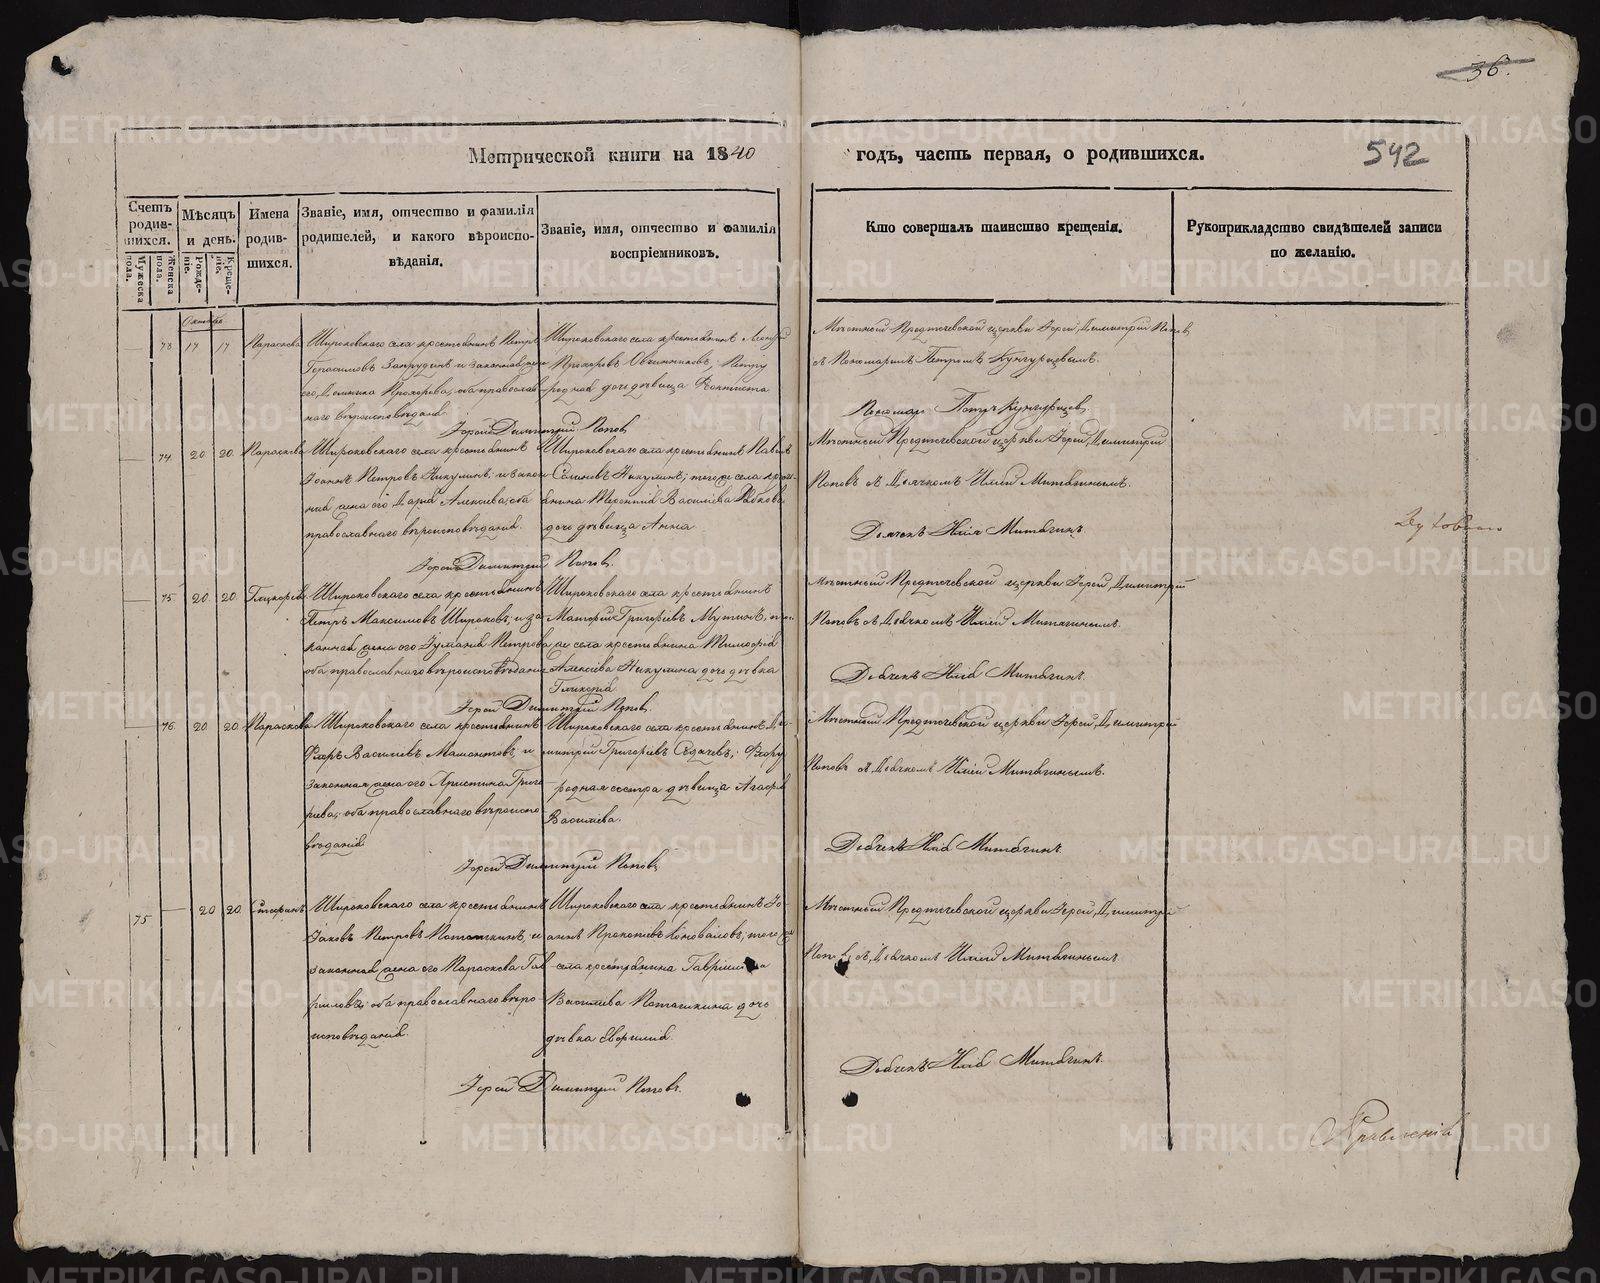 36.
Метрической книги на 1840
годъ, часть первая, о родившихся.
542
Счетъ родившихся.
Мужеска пола.
Женска пола.
Мѣсяцъ и день.
Рожденіе.
Крещеніе.
Имена родившихся.
Званіе, имя, отчество и фамилія родителей, и какого вѣроисповѣданія.
Званіе, имя, отчество и фамилія воспріемниковъ.
Кто совершалъ таинство крещенія.
Рукоприкладство свидѣтелей записи по желанію.
Октябрь
73 17 17 Параскева
Широковскаго села крестьянинъ Петръ
Герасимовъ Запрудинъ и законная жена
его Домника Прохорова, оба православ
наго вѣроисповѣданія
Широковскаго села крестьянинъ
Прохоровъ Овчинниковъ, Петру
родная дочь дѣвица
Мѣстный Предтечевской церкви Іерей Димитрій Поповъ
съ Пономаремъ Петромъ Кунгурцевымъ.
Пономарь Петръ Кунгурцевъ
Іерей Димитрій Поповъ
74 20 20 Параскева
Широковскаго села крестьянинъ
Іоаннъ Петровъ Никулинъ, и закон
ная жена его Дарія Алексіева, оба
православнаго вѣроисповѣданія.
Широковскаго села крестьянинъ Павелъ
Никулинъ; тогоже села кресть
янина Василіева
дочь дѣвица Анна
Мѣстный Предтечевской церкви Іерей Димитрій
Поповъ съ Дьячкомъ Иліей Митягинымъ.
Дьячекъ Илія Митягинъ.
Іерей Димитрій Поповъ.
75 20 20 Гликерія
Широковскаго села крестьянинъ
Петръ Максимовъ Широковъ, и за
конная жена его Іуліанія Петрова
оба православнаго вѣроисповѣданія
Широковскаго села крестьянинъ
Григорьевъ
же села крестьянина Тимофея
Алексіева Никулина дочь дѣвка
Гликерія
Мѣстный Предтечевской церкви Іерей Димитрій
Поповъ съ Дьячкомъ Иліей Митягинымъ.
Дьячекъ Илія Митягинъ.
Іерей Димитрій Поповъ.
76 20 20 Параскева
Широковскаго села крестьянинъ
Василіевъ Мамонтовъ, и
законная жена его Христина Григо
рьева, оба православнаго вѣроиспо
вѣданія
Широковскаго села крестьянинъ Ди
митрій Григорьевъ
родная сестра дѣвица Агафья
Василіева.
Мѣстный Предтечевской церкви Іерей Димитрій
Поповъ съ Дьячкомъ Иліей Митягинымъ.
Дьячекъ Илія Митягинъ
Іерей Димитрій Поповъ
75 20 20 Стефанъ
Широковскаго села крестьянинъ
Іаковъ Петровъ Поташкинъ, и
законная жена его Параскева Гав
рилова; оба православнаго вѣро
исповѣданія.
Широковскаго села крестьянинъ Іо
аннъ Прокопьевъ Коноваловъ; того же
села крестьянина Гавріила
Василіева Поташкина дочь
дѣвка
Мѣстный Предтечевской церкви Іерей Димитрій
Поповъ съ Дьячкомъ Иліей Митягинымъ
Дьячекъ Илія Митягинъ.
Іерей Димитрій Поповъ.
Духовнаго
Правленія
METRIKI.GASO-URAL.RU